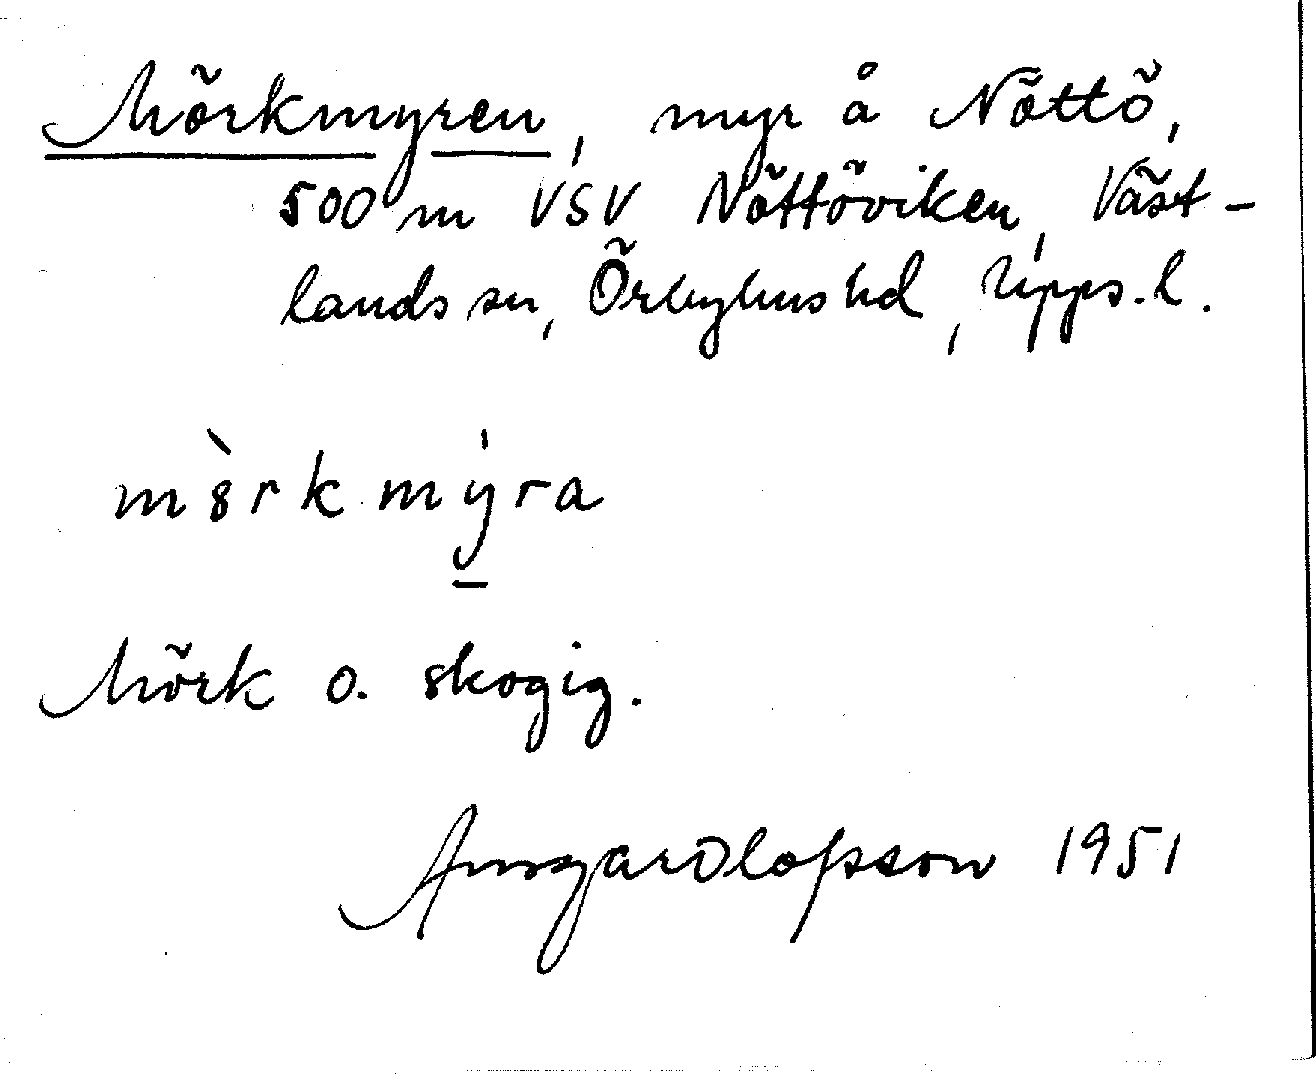 Mörkmyren, myr å Nöttö,
500 m VSV Nöttöviken, Väst-
lands sn, Örbyhus hd, Upps. l.
mörkmýra
Mörk o. skogig.
Ansgar Olofsson 1951